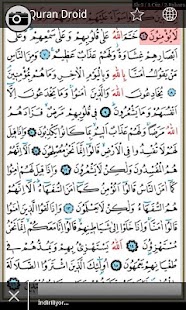 Quran Droid
لَا يُؤْمِنُونَ خَتَمَ اللّٰهُ عَلٰى قُلُوبِهِمْ وَعَلٰى سَمْعِهِمْ وَعَلٰٓى
اَبْصَارِهِمْ غِشَاوَةٌ وَلَهُمْ عَذَابٌ عَظِيمٌ وَمِنَ النَّاسِ
مَنْ يَقُولُ اٰمَنَّا بِاللّٰهِ وَبِالْيَوْمِ الْاٰخِرِ وَمَا هُمْ بِمُؤْمِنِينَ
يُخَادِعُونَ اللّٰهَ وَالَّذِينَ اٰمَنُوا وَمَا يَخْدَعُونَ اِلَّٓا
اَنْفُسَهُمْ وَمَا يَشْعُرُونَ فِي قُلُوبِهِمْ مَرَضٌ فَزَادَهُمُ
اللّٰهُ مَرَضًا وَلَهُمْ عَذَابٌ اَلِيمٌ بِمَا كَانُوا يَكْذِبُونَ
وَاِذَا قِيلَ لَهُمْ لَا تُفْسِدُوا فِي الْاَرْضِ قَالُٓوا اِنَّمَا نَحْنُ
مُصْلِحُونَ اَلَٓا اِنَّهُمْ هُمُ الْمُفْسِدُونَ وَلٰكِنْ لَا يَشْعُرُونَ
وَاِذَا قِيلَ لَهُمْ اٰمِنُوا كَمَٓا اٰمَنَ النَّاسُ قَالُٓوا اَنُؤْمِنُ كَمَٓا اٰمَنَ
السُّفَهَٓاءُ اَلَٓا اِنَّهُمْ هُمُ السُّفَهَٓاءُ وَلٰكِنْ لَا يَعْلَمُونَ
وَاِذَا لَقُوا الَّذِينَ اٰمَنُوا قَالُٓوا اٰمَنَّا وَاِذَا خَلَوْا اِلٰى
شَيَاطِينِهِمْ قَالُٓوا اِنَّا مَعَكُمْ اِنَّمَا نَحْنُ
مُسْتَهْزِؤُنَ اَللّٰهُ يَسْتَهْزِئُ بِهِمْ وَيَمُدُّهُمْ فِي
طُغْيَانِهِمْ يَعْمَهُونَ اُو۬لٰٓئِكَ الَّذِينَ اشْتَرَوُا الضَّلَالَةَ
İndiriliyor...